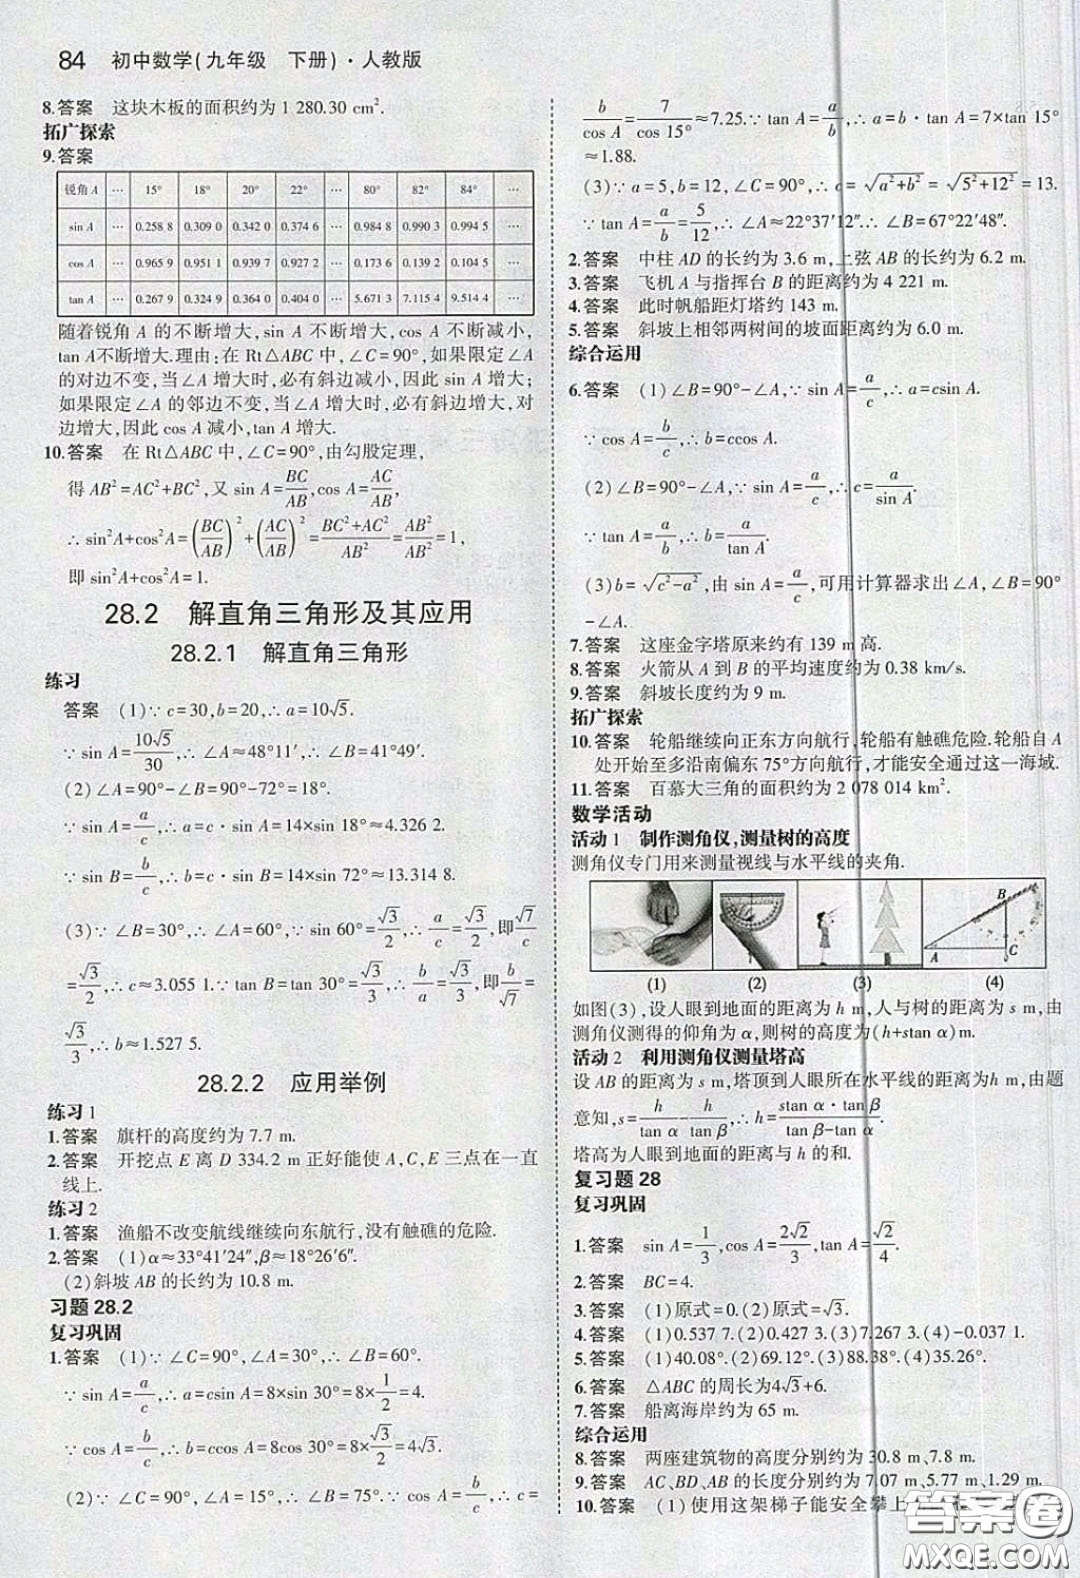 84 初中数学(九年级 下册)·人教版
8.答案 这块木板的面积约为 1 280.30 cm².
拓广探索
9.答案
锐角 A … 15° 18° 20° 22° … 80° 82° 84° …
sin A … 0.258 8 0.309 0 0.342 0 0.374 6 … 0.984 8 0.990 3 0.994 5 …
cos A … 0.965 9 0.951 1 0.939 7 0.927 2 … 0.173 6 0.139 2 0.104 5 …
tan A … 0.267 9 0.324 9 0.364 0 0.404 0 … 5.671 3 7.115 4 9.514 4 …
随着锐角 A 的不断增大,sin A 不断增大,cos A 不断减小,
tan A不断增大.理由:在 Rt△ABC 中,∠C=90°,如果限定∠A
的对边不变,当∠A 增大时,必有斜边减小,因此 sin A 增大;
如果限定∠A 的邻边不变,当∠A 增大时,必有斜边增大,对
边增大,因此 cos A 减小,tan A 增大.
10.答案 在 Rt△ABC 中,∠C=90°,由勾股定理,
得 AB²=AC²+BC²,又 sin A=BC/AB,cos A=AC/AB,
∴ sin²A+cos²A=(BC/AB)²+(AC/AB)²=(BC²+AC²)/AB²=AB²/AB²=1,
即 sin²A+cos²A=1.
28.2 解直角三角形及其应用
28.2.1 解直角三角形
练习
答案 (1)∵ c=30,b=20,∴ a=10√5.
∵ sin A=10√5/30,∴ ∠A≈48°11′,∴ ∠B=41°49′.
(2)∠A=90°-∠B=90°-72°=18°.
∵ sin A=a/c,∴ a=c·sin A=14×sin 18°≈4.326 2.
∵ sin B=b/c,∴ b=c·sin B=14×sin 72°≈13.314 8.
(3)∵ ∠B=30°,∴ ∠A=60°,∵ sin 60°=√3/2,∴ a/c=√3/2,即√7/c
=√3/2,∴ c≈3.055 1.∵ tan B=tan 30°=√3/3,∴ b/a=√3/3,即b/√7=
√3/3,∴ b≈1.527 5.
28.2.2 应用举例
练习 1
1.答案 旗杆的高度约为 7.7 m.
2.答案 开挖点 E 离 D 334.2 m 正好能使 A,C,E 三点在一直
线上.
练习 2
1.答案 渔船不改变航线继续向东航行,没有触礁的危险.
2.答案 (1)α≈33°41′24″,β≈18°26′6″.
(2)斜坡 AB 的长约为 10.8 m.
习题 28.2
复习巩固
1.答案 (1)∵ ∠C=90°,∠A=30°,∴ ∠B=60°.
∵ sin A=a/c,∴ a=csin A=8×sin 30°=8×1/2=4.
∵ cos A=b/c,∴ b=ccos A=8cos 30°=8×√3/2=4√3.
(2)∵ ∠C=90°,∠A=15°,∴ ∠B=75°.∵ cos A=b/c,∴ c=
b/cos A=7/cos 15°≈7.25.∵ tan A=a/b,∴ a=b·tan A=7×tan 15°
≈1.88.
(3)∵ a=5,b=12,∠C=90°,∴ c=√(a²+b²)=√(5²+12²)=13.
∵ tan A=a/b=5/12,∴ ∠A≈22°37′12″.∴ ∠B=67°22′48″.
2.答案 中柱 AD 的长约为 3.6 m,上弦 AB 的长约为 6.2 m.
3.答案 飞机 A 与指挥台 B 的距离约为 4 221 m.
4.答案 此时帆船距灯塔约 143 m.
5.答案 斜坡上相邻两树间的坡面距离约为 6.0 m.
综合运用
6.答案 (1)∠B=90°-∠A,∵ sin A=a/c,∴ a=csin A.
∵ cos A=b/c,∴ b=ccos A.
(2)∠B=90°-∠A,∵ sin A=a/c,∴ c=a/sin A.
∵ tan A=a/b,∴ b=a/tan A.
(3)b=√(c²-a²),由 sin A=a/c,可用计算器求出∠A,∠B=90°
-∠A.
7.答案 这座金字塔原来约有 139 m 高.
8.答案 火箭从 A 到 B 的平均速度约为 0.38 km/s.
9.答案 斜坡长度约为 9 m.
拓广探索
10.答案 轮船继续向正东方向航行,轮船有触礁危险.轮船自 A
处开始至多沿南偏东 75°方向航行,才能安全通过这一海域.
11.答案 百慕大三角的面积约为 2 078 014 km².
数学活动
活动 1 制作测角仪,测量树的高度
测角仪专门用来测量视线与水平线的夹角.
A B C
(1) (2) (3) (4)
如图(3),设人眼到地面的距离为 h m,人与树的距离为 s m,由
测角仪测得的仰角为 α,则树的高度为(h+stan α)m.
活动 2 利用测角仪测量塔高
设 AB 的距离为 s m,塔顶到人眼所在水平线的距离为h m,由题
意知,s=h/tan α-h/tan β,∴ h=(stan α·tan β)/(tan β-tan α).
塔高为人眼到地面的距离与 h 的和.
复习题 28
复习巩固
1.答案 sin A=1/3,cos A=2√2/3,tan A=√2/4.
2.答案 BC=4.
3.答案 (1)原式=0.(2)原式=√3.
4.答案 (1)0.537 7.(2)0.427 3.(3)7.267 3.(4)-0.037 1.
5.答案 (1)40.08°.(2)69.12°.(3)88.38°.(4)35.26°.
6.答案 △ABC 的周长为4√3+6.
7.答案 船离海岸约为 65 m.
综合运用
8.答案 两座建筑物的高度分别约为 30.8 m、7.8 m.
9.答案 AC,BD,AB 的长度分别约为 7.07 m、5.77 m、1.29 m.
10.答案 (1)使用这架梯子能安全攀上
答案圈
MXQE.COM